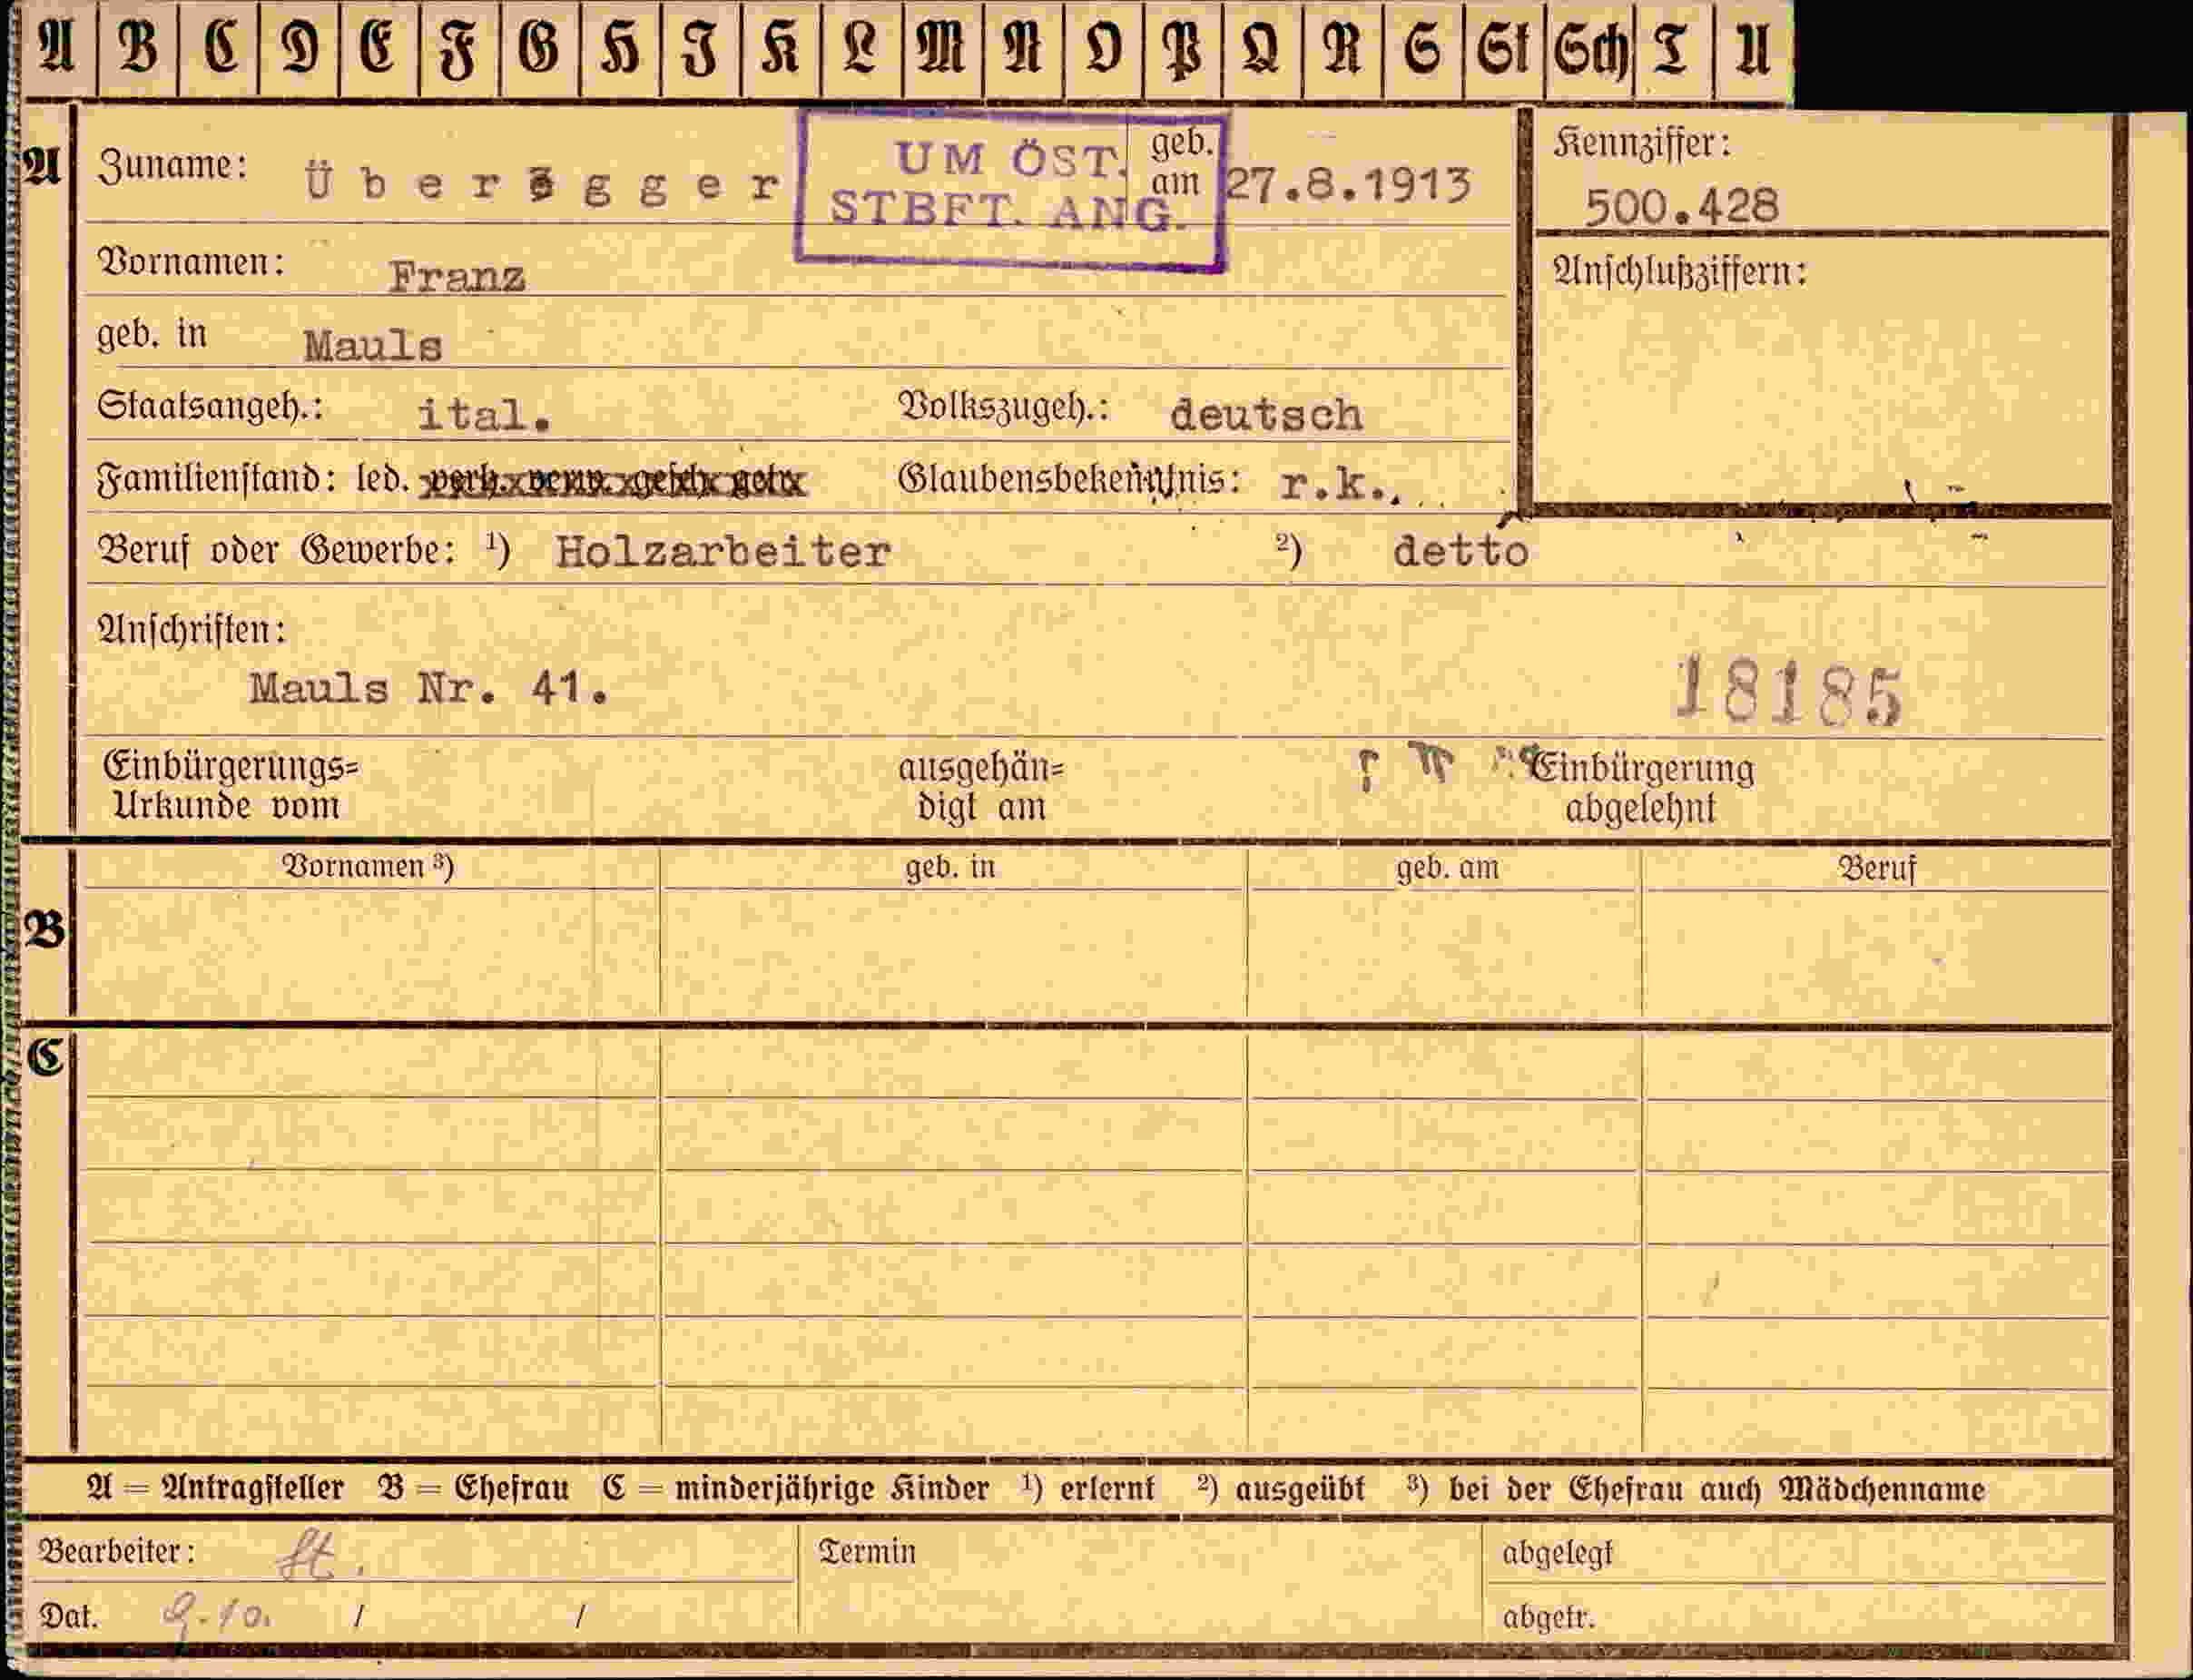 A B C D E F G H I K L M N O P Q R S St Sch T U
A Zuname: Überegger geb. am 27.8.1913
UM ÖST.
STBFT. ANG.
Kennziffer:
500.428
Vornamen: Franz
Anschlußziffern:
geb. in Mauls
Staatsangeh.: ital. Volkszugeh.: deutsch
Familienstand: led. verh. verw. gesch. getr. Glaubensbekenntnis: r.k.
Beruf oder Gewerbe: ¹) Holzarbeiter ²) detto
Anschriften:
Mauls Nr. 41.
18185
Einbürgerungs=
Urkunde vom
ausgehän=
digt am
Einbürgerung
abgelehnt
Vornamen ³) geb. in geb. am Beruf
B
C
A = Antragsteller B = Ehefrau C = minderjährige Kinder ¹) erlernt ²) ausgeübt ³) bei der Ehefrau auch Mädchenname
Bearbeiter: Termin abgelegt
Dat. 9.10. / / abgetr.